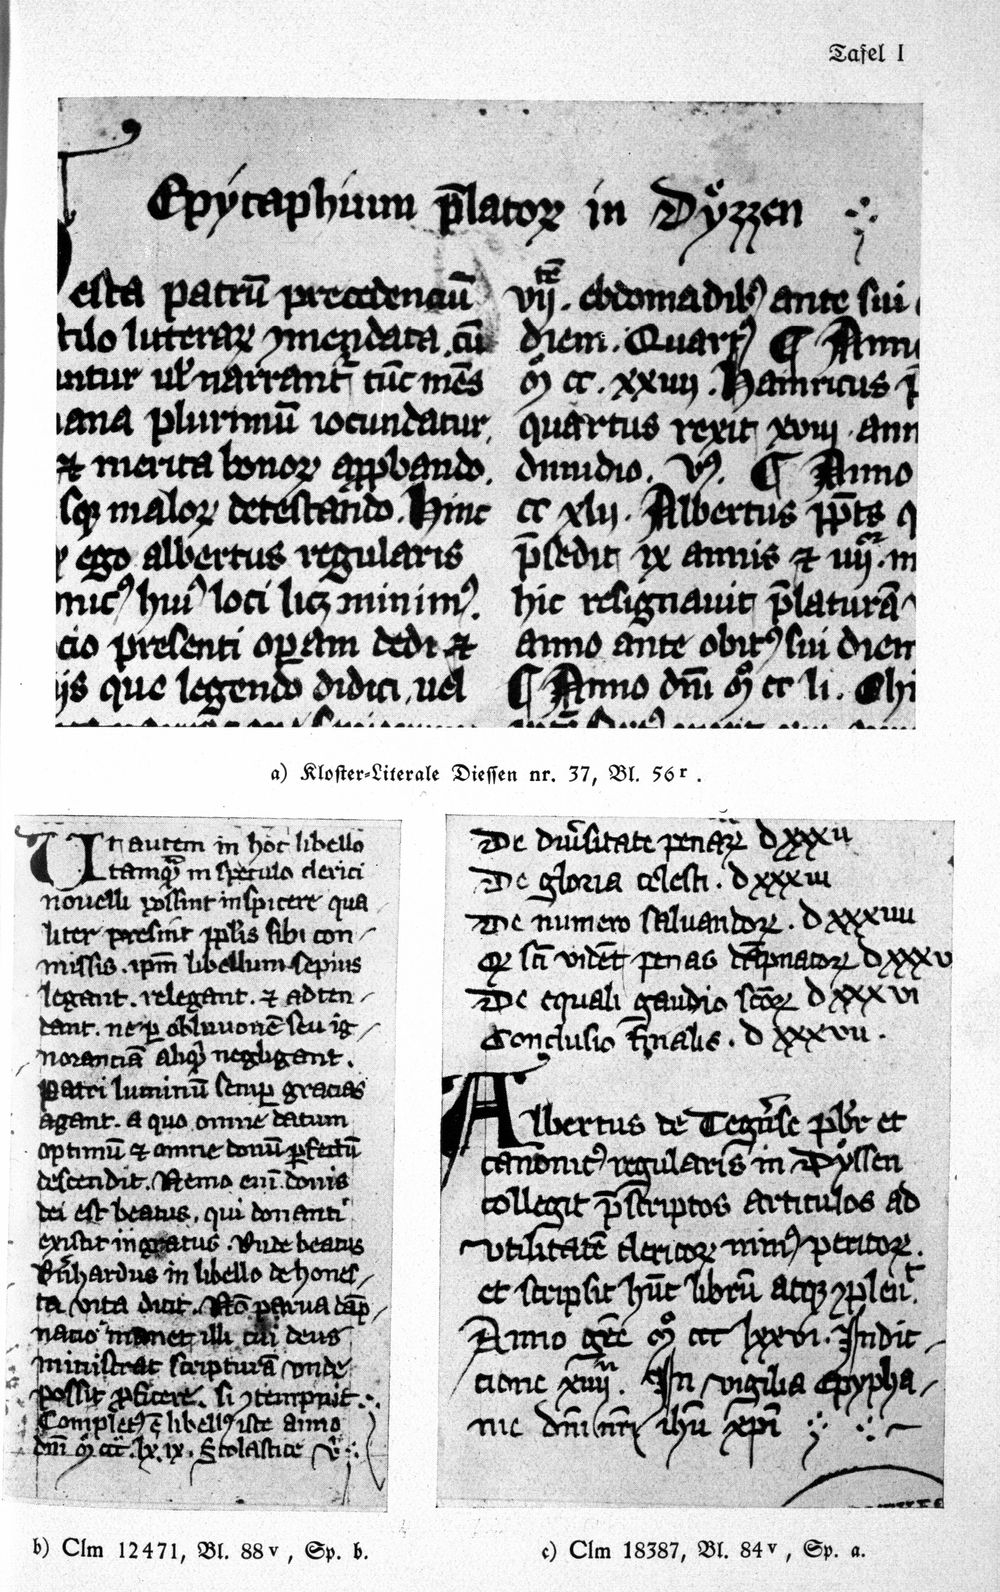 Tafel I
Epytaphium p̄lator in Dyͤzzen
esta patrū precedenciū
stilo litterar ꝯmendata cū
antur ul̓ narrant tūc mēs
ana plurimū iocundatur
⁊ merita bonor app̱bando.
sqꝫ malor detestando. Hinc
ego albertus regularis
nicꝰ huiꝰ loci licꝫ minimꝰ.
cio presenti oꝑam dedi ⁊
ijs que legendo didici, uel
vij.tē ebdomadibꝰ ante sui
diem. Quartꝰ ¶ Anno
mͦ cc. xxiiij. Hainricus
quartus rexit xviij ann
dimidio. vꝰ. ¶ Anno
cc xlij. Albertus pp̄ts
p̄sedit ix annis ⁊ iiij.or m
hic resignauit p̄laturā
anno ante obitꝰ sui diem
¶ Anno dn̄i mͦ cc li. Chi
a) Kloster-Literale Diessen nr. 37, Bl. 56r.
Ut autem in hoc libello
tamqͣ in speculo clerici
nouelli possint inspicere qua
liter presint ppl̓is sibi con
missis. ip̄m libellum sepius
legant. relegant. ⁊ adten
dant. ne ꝑ obliuionē seu ig
noranciā aliqͥd negligant.
Patri luminū semꝑ gracias
agant. a quo omne datum
optimū ⁊ omne donū ꝑfectū
descendit. Nemo eni donis
dei est beatus, qui donanti
existit ingratus. Vnde beatus
Bn̄hardus in libello de hones
ta vita dicit. Nō parua dāp
natio manet illi cui deus
ministrat scripturā vnde
possit ꝓficere. si ꝯtempnit.
Completꝰ ē libellꝰ iste anno
dn̄i mͦ ccc. lx.ix. Scolastice v̓
b) Clm 12471, Bl. 88v, Sp. b.
De diu̓sitate penar d xxxii
De gloria celesti. d xxxiii
De numero saluandor. d xxxiiii
Qr sc̄i vidēt penas dāpnator d xxxv
De equali gaudio sc̄or d xxxvi
Conclusio finalis. d xxxvii.
Albertus de Tegn̓se pb̄r et
canonicꝰ regularis in Dyͤssen
collegit p̄scriptos articulos ad
vtilitatē clericor minꝰ peritor.
et scripsit hūc librū atqꝫ ꝯpleuit.
Anno gr̄e mͦ ccc lxxvi. Indic
tione xiiij. In vigilia Epypha
nie dn̄i nr̄i ihū xp̄i
c) Clm 18387, Bl. 84v, Sp. a.